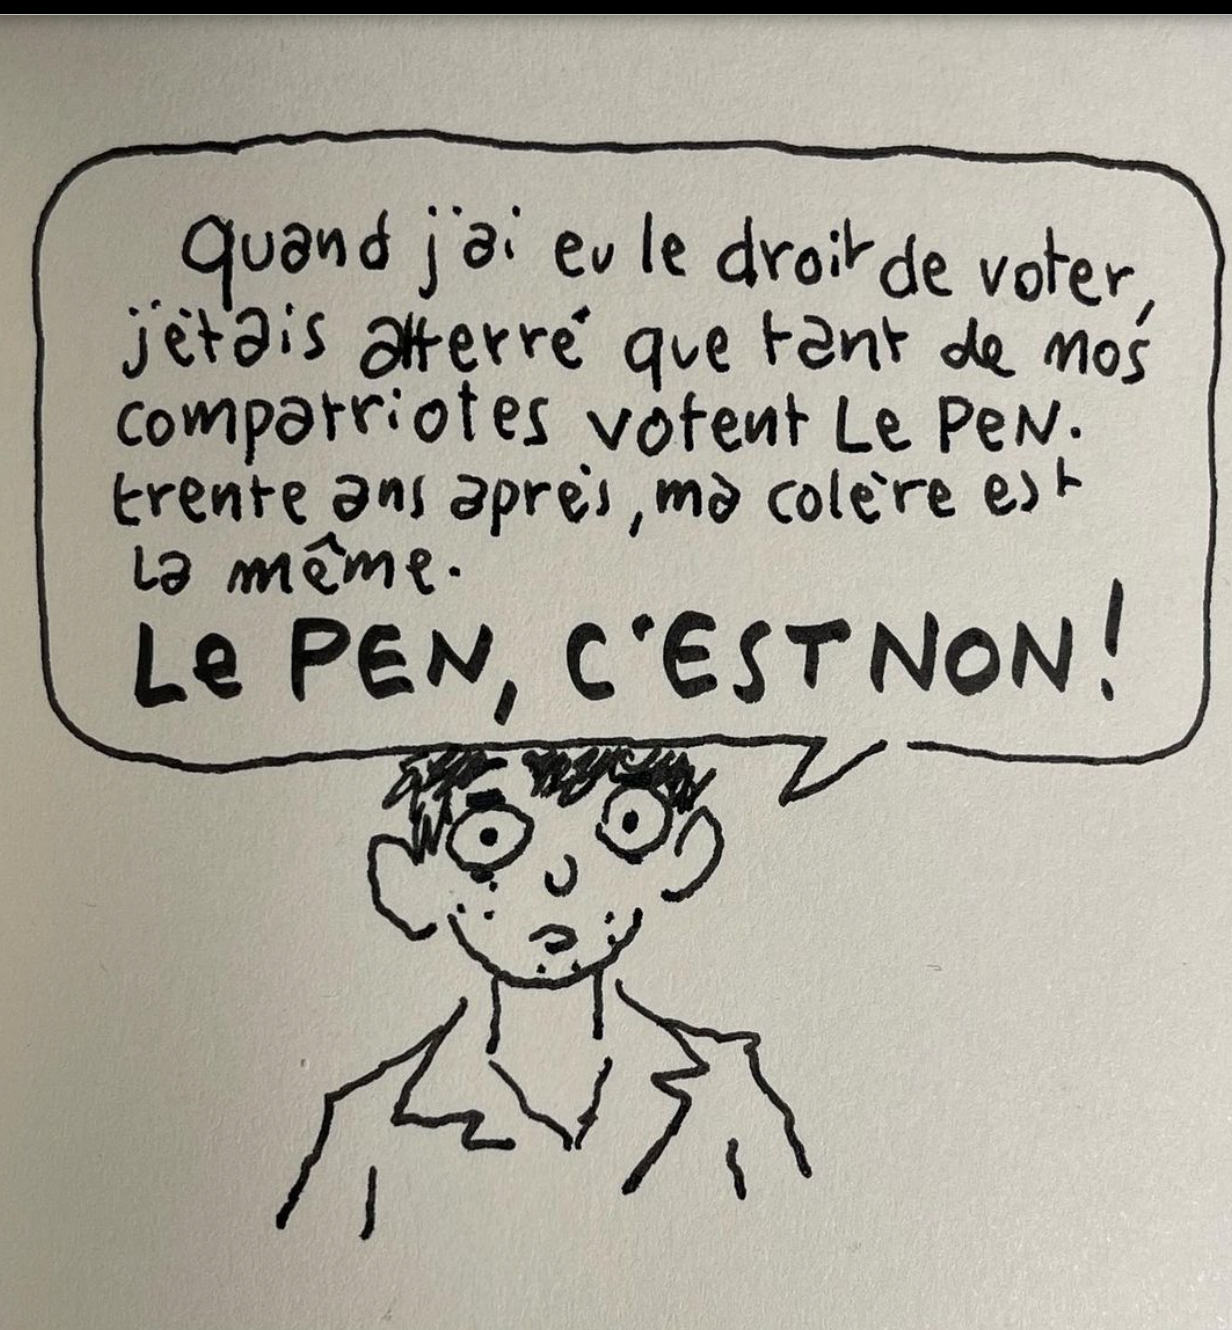 Quand j'ai eu le droit de voter,
j'étais atterré que tant de nos
compatriotes votent Le PeN.
trente ans après, ma colère est
la même.
Le PEN, C'EST NON!